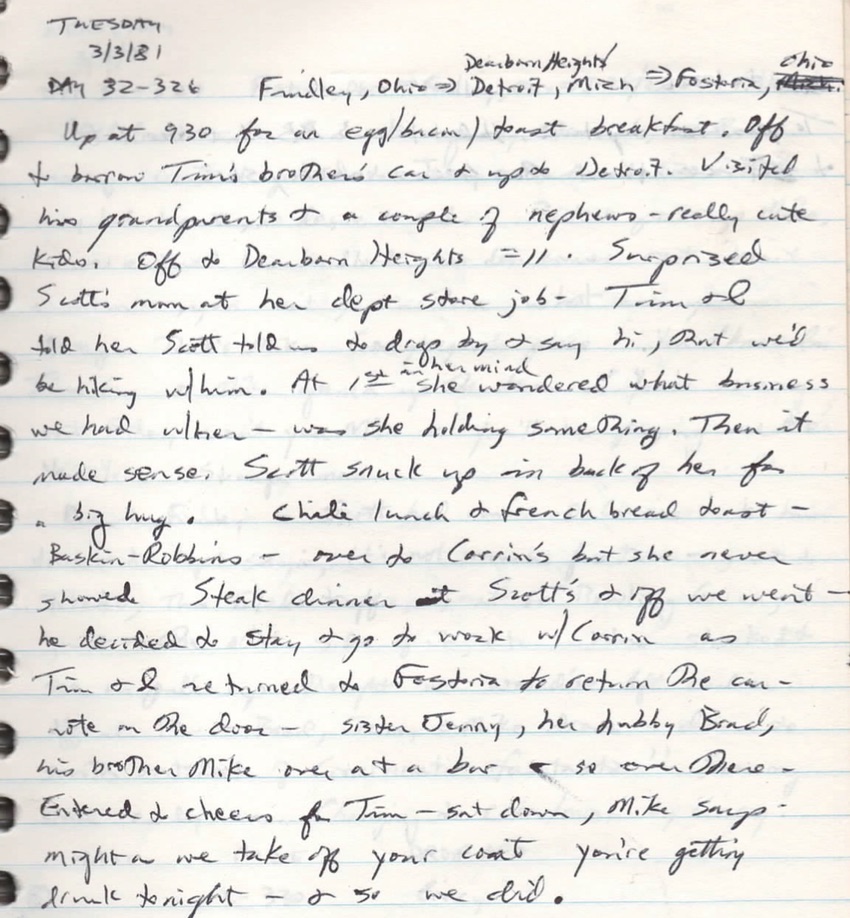 TUESDAY
3/3/81
Dearborn Heights/ Ohio
DAY 32-326 Findley, Ohio => Detroit, Mich => Fostoria,
Up at 930 for an egg/bacon/toast breakfast. Off
to borrow Tim's brother's car & up to Detroit. Visited
his grandparents & a couple of nephews - really cute
kids. Off to Dearborn Heights = 11. Surprised
Scott's mom at her dept store job - Tim & I
told her Scott told us to drop by & say hi, that we'd
in her mind
be hiking w/him. At 1st she wondered what business
we had w/her - was she holding something. Then it
made sense. Scott snuck up in back of her for
a big hug. Chili lunch & french bread toast -
Baskin-Robbins - over to Corrin's but she never
showed. Steak dinner at Scott's & off we went -
he decided to stay & go to work w/Corrin as
Tim & I returned to Fostoria to return the car -
note on the door - sister Jenny, her hubby Brad,
his brother Mike over at a bar - so over there -
Entered to cheers for Tim - sat down, Mike says -
might as we take off your coat you're getting
drunk tonight - & so we did.